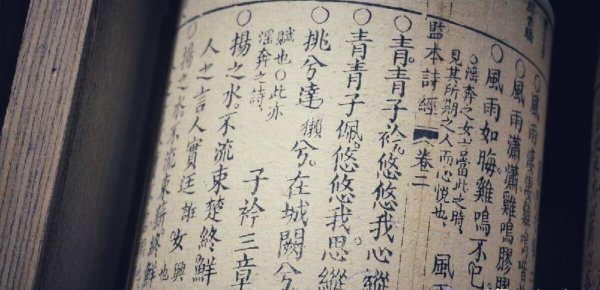 ○風雨淒淒雞鳴喈喈
○風雨瀟瀟雞鳴膠膠
○風雨如晦雞鳴不已
○淫奔之女言當此之時
見其所期之人而心悅也
風
監本詩經 卷二
○青青子衿悠悠我心縱
○青青子佩悠悠我思縱
○挑兮達獺兮在城闕兮
賦也○此亦
淫奔之詩
子衿三章
○揚之水不流東楚終鮮
人之言人實廷誑女興
也
○揚之水不流東薪終鮮